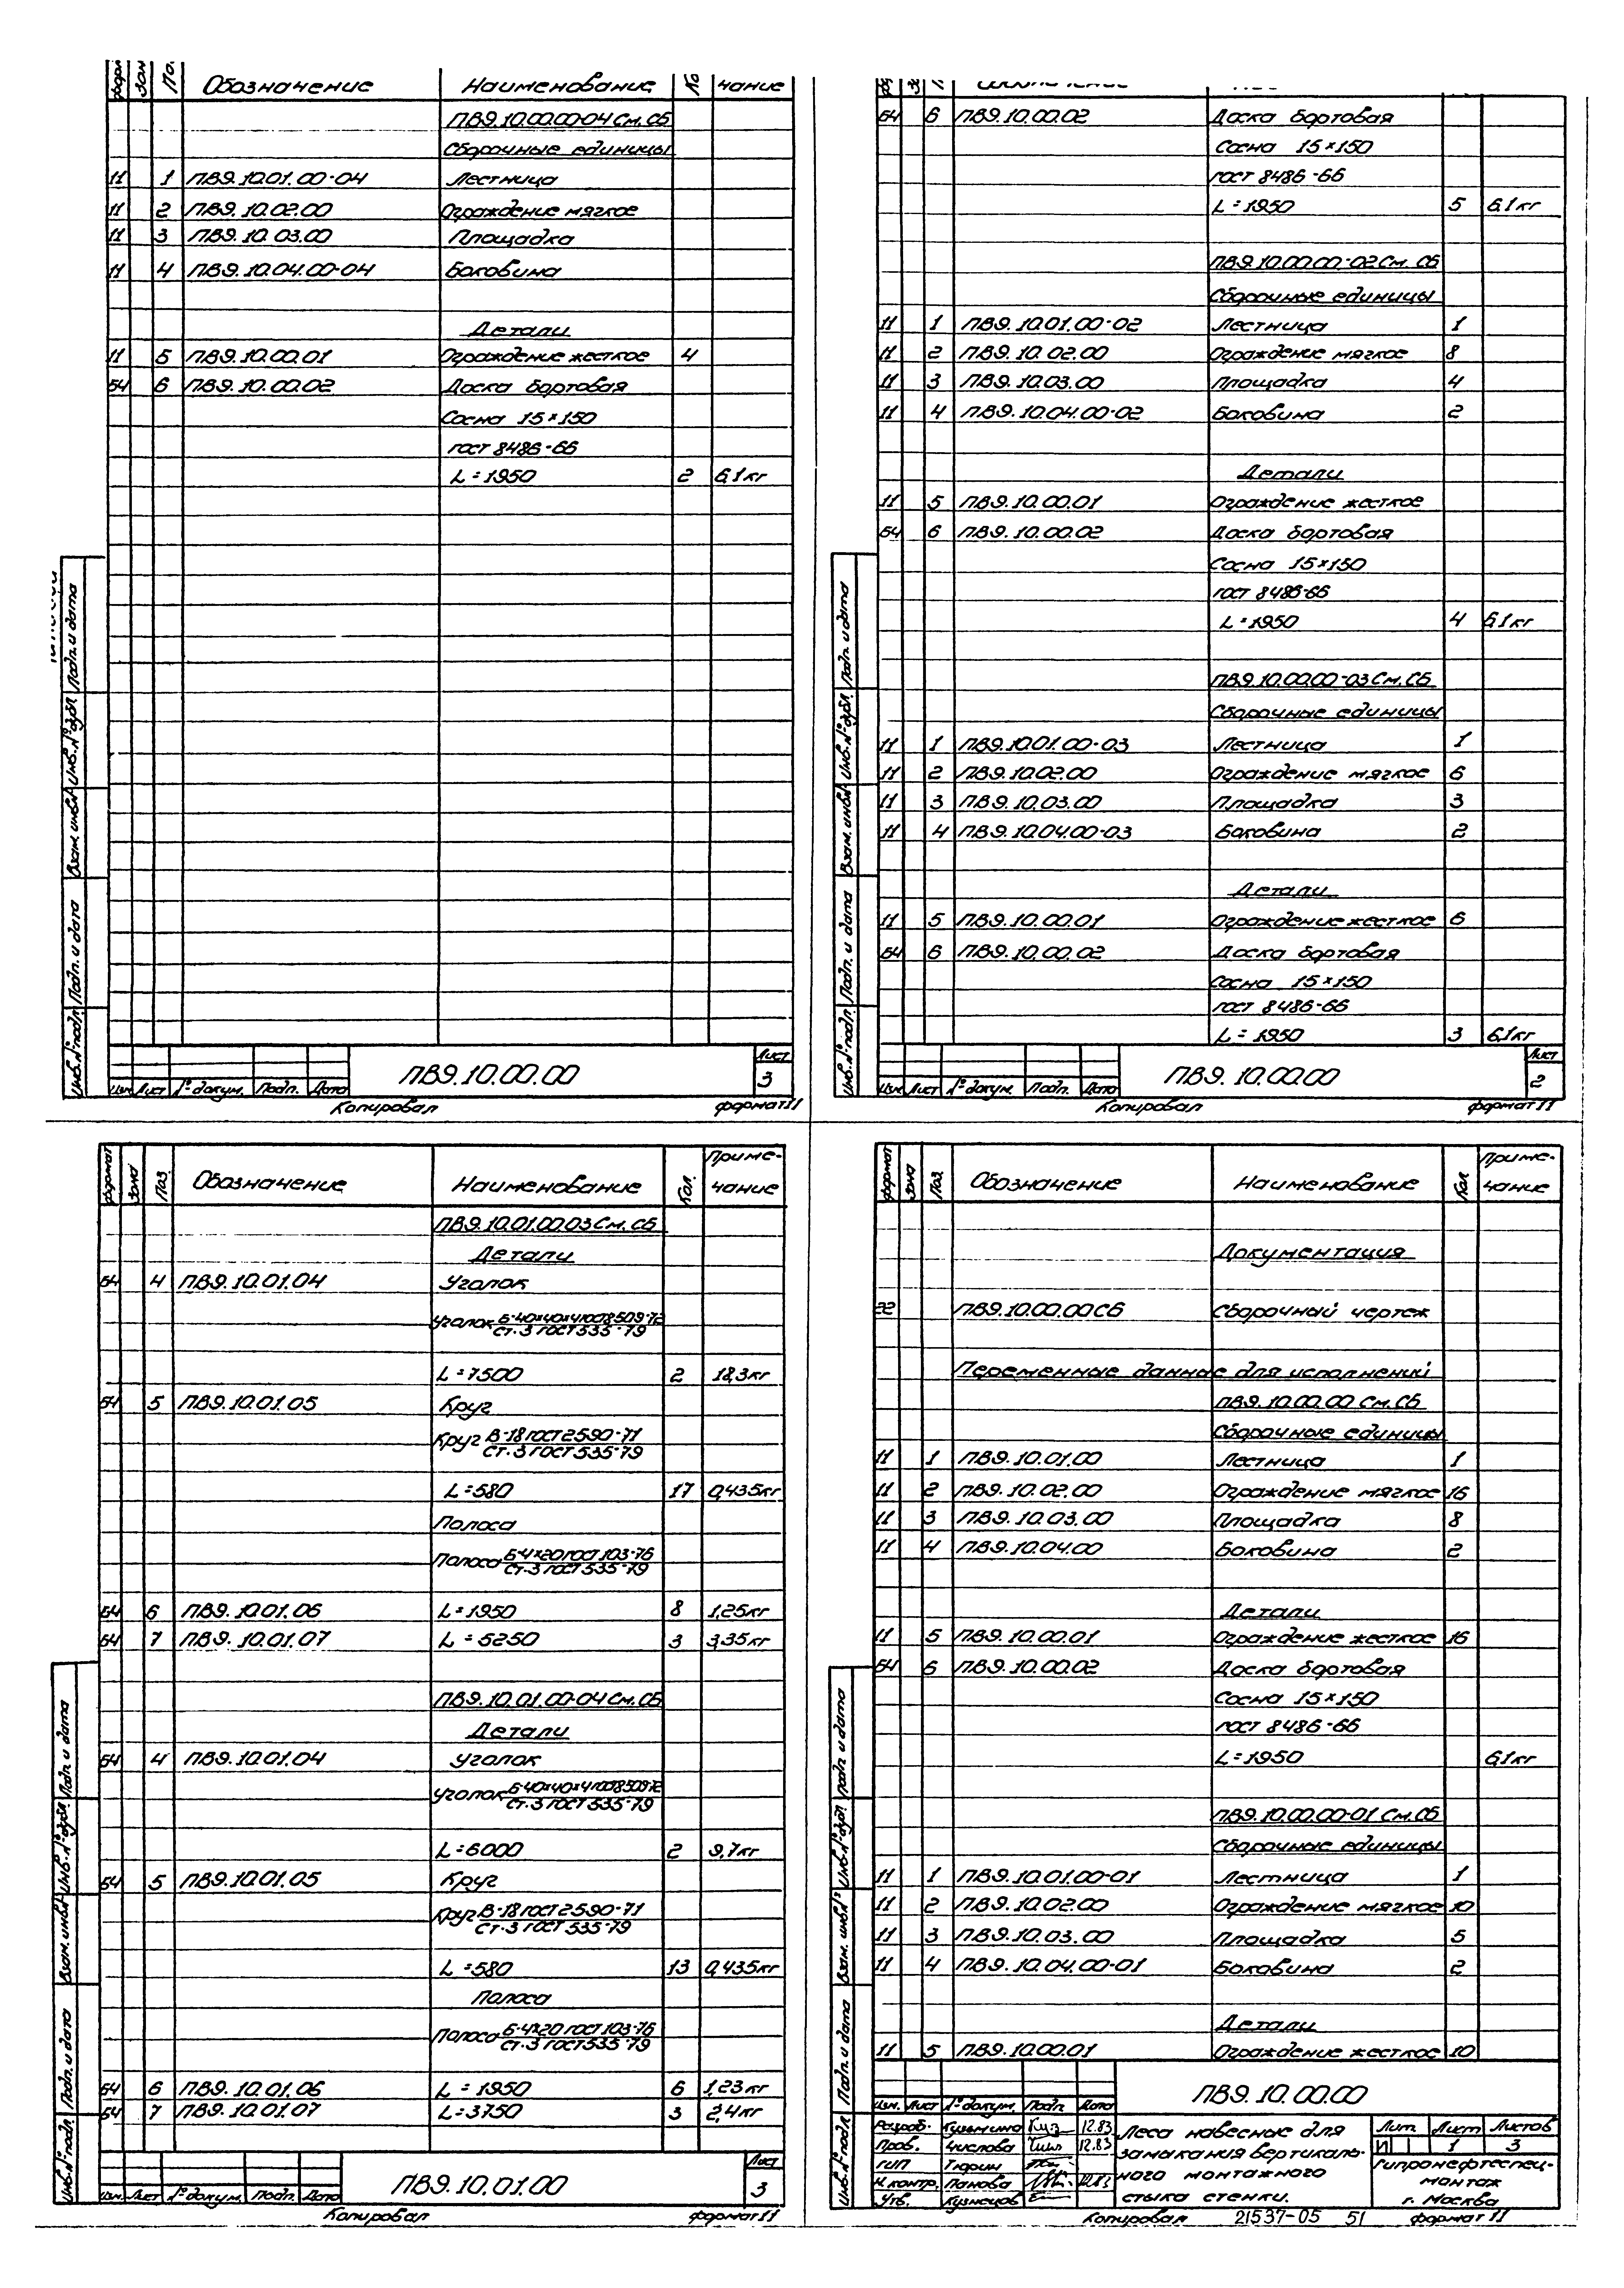 форм Зон По. Обозначение Наименование Ко чание
ПВ9.10.00.00-04 См. СБ
Сборочные единицы
11 1 ПВ9.10.01.00-04 Лестница
11 2 ПВ9.10.02.00 Ограждение мягкое
11 3 ПВ9.10.03.00 Площадка
11 4 ПВ9.10.04.00-04 Боковина
Детали
11 5 ПВ9.10.00.01 Ограждение жесткое 4
Б4 6 ПВ9.10.00.02 Доска бортовая
Сосна 15×150
ГОСТ 8486-66
L=1950 2 6,1кг
Инв.№подл. Подп. и дата Взам. инв.№ Инв.№дубл. Подп. и дата
Изм. Лист №докум. Подп. Дата
ПВ9.10.00.00
Лист
3
Копировал формат 11
Б4 6 ПВ9.10.00.02 Доска бортовая
Сосна 15×150
ГОСТ 8486-66
L=1950 5 6,1кг
ПВ9.10.00.00-02 См. СБ
Сборочные единицы
11 1 ПВ9.10.01.00-02 Лестница 1
11 2 ПВ9.10.02.00 Ограждение мягкое 8
11 3 ПВ9.10.03.00 Площадка 4
11 4 ПВ9.10.04.00-02 Боковина 2
Детали
11 5 ПВ9.10.00.01 Ограждение жесткое
Б4 6 ПВ9.10.00.02 Доска бортовая
Сосна 15×150
ГОСТ 8486-66
L=1950 4 6,1кг
ПВ9.10.00.00-03 См. СБ
Сборочные единицы
11 1 ПВ9.10.01.00-03 Лестница 1
11 2 ПВ9.10.02.00 Ограждение мягкое 6
11 3 ПВ9.10.03.00 Площадка 3
11 4 ПВ9.10.04.00-03 Боковина 2
Детали
11 5 ПВ9.10.00.01 Ограждение жесткое 6
Б4 6 ПВ9.10.00.02 Доска бортовая
Сосна 15×150
ГОСТ 8486-66
L=1950 3 6,1кг
Инв.№подл. Подп. и дата Взам. инв.№ Инв.№дубл. Подп. и дата
Изм. Лист №докум. Подп. Дата
ПВ9.10.00.00
Лист
2
Копировал формат 11
формат Зона Поз. Обозначение Наименование Кол. Приме-
чание
ПВ9.10.01.00.03 См. СБ
Детали
Б4 4 ПВ9.10.01.04 Уголок
Уголок Б-40×40×4 ГОСТ 8509-72
Ст.3 ГОСТ 535-79
L=7500 2 18,3кг
Б4 5 ПВ9.10.01.05 Круг
Круг В-18 ГОСТ 2590-71
Ст.3 ГОСТ 535-79
L=580 17 0,435кг
Полоса
Полоса Б-4×20 ГОСТ 103-76
Ст.3 ГОСТ 535-79
Б4 6 ПВ9.10.01.06 L=1950 8 1,25кг
Б4 7 ПВ9.10.01.07 L=5250 3 3,35кг
ПВ9.10.01.00-04 См. СБ
Детали
Б4 4 ПВ9.10.01.04 Уголок
Уголок Б-40×40×4 ГОСТ 8509-72
Ст.3 ГОСТ 535-79
L=6000 2 9,7кг
Б4 5 ПВ9.10.01.05 Круг
Круг В-18 ГОСТ 2590-71
Ст.3 ГОСТ 535-79
L=580 13 0,435кг
Полоса
Полоса Б-4×20 ГОСТ 103-76
Ст.3 ГОСТ 535-79
Б4 6 ПВ9.10.01.06 L=1950 6 1,23кг
Б4 7 ПВ9.10.01.07 L=3750 3 2,4кг
Инв.№подл. Подп. и дата Взам. инв.№ Инв.№дубл. Подп. и дата
Изм. Лист №докум. Подп. Дата
ПВ9.10.01.00
Лист
3
Копировал формат 11
формат Зона Поз. Обозначение Наименование Кол Приме-
чание
Документация
22 ПВ9.10.00.00 СБ Сборочный чертеж
Переменные данные для исполнений
ПВ9.10.00.00 См. СБ
Сборочные единицы
11 1 ПВ9.10.01.00 Лестница 1
11 2 ПВ9.10.02.00 Ограждение мягкое 16
11 3 ПВ9.10.03.00 Площадка 8
11 4 ПВ9.10.04.00 Боковина 2
Детали
11 5 ПВ9.10.00.01 Ограждение жесткое 16
Б4 6 ПВ9.10.00.02 Доска бортовая
Сосна 15×150
ГОСТ 8486-66
L=1950 6,1кг
ПВ9.10.00.00-01 См. СБ
Сборочные единицы
11 1 ПВ9.10.01.00-01 Лестница 1
11 2 ПВ9.10.02.00 Ограждение мягкое 10
11 3 ПВ9.10.03.00 Площадка 5
11 4 ПВ9.10.04.00-01 Боковина 2
Детали
11 5 ПВ9.10.00.01 Ограждение жесткое 10
Инв.№подл. Подп. и дата Взам. инв.№ Инв.№дубл. Подп. и дата
ПВ9.10.00.00
Изм. Лист №докум. Подп. Дата
Разраб. Кузьмина 12.83
Пров. Числова 12.83
ГИП Тюрин
Н.контр. Панова 12.83
Утв. Кузнецов
Леса навесные для
замыкания вертикаль-
ного монтажного
стыка стенки.
Лит. Лист Листов
И 1 3
Гипронефтеспец-
монтаж
г. Москва
Копировал 21537-05 51 формат 11